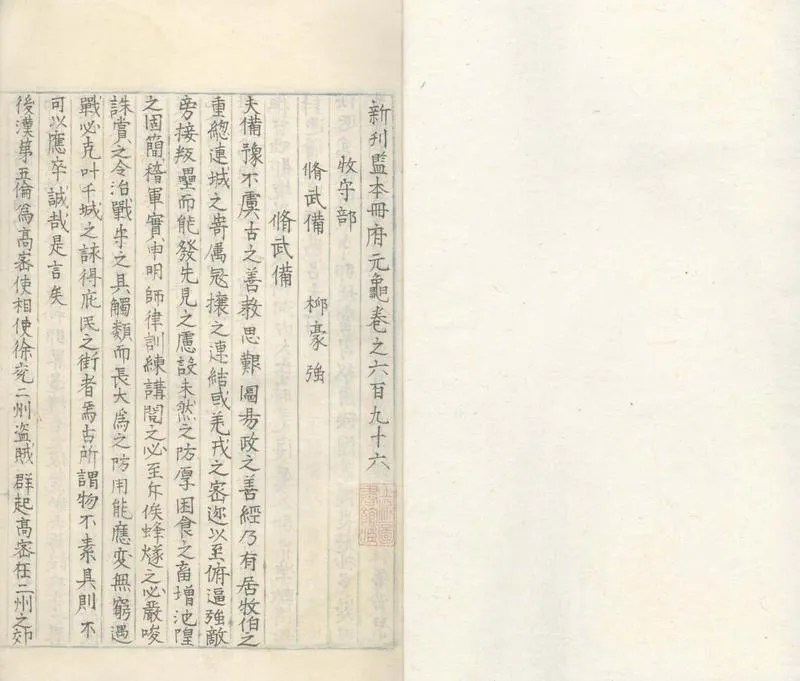 新刊監本冊府元龜卷之六百九十六
牧守部
脩武備 抑豪強
脩武備
夫備豫不虞古之善教思艱圖易政之善經乃有居牧伯之
重緫連城之寄屬冦攘之連結或羌戎之密迩以至俯逼強敵
旁接叛壘而能發先見之慮設未然之防厚困食之畜增池隍
之固簡稽軍實申明師律訓練講閲之必至斥候蜂燧之必嚴峻
誅賞之令治戰守之具觸類而長大為之防用能應変無窮遇
戰必克叶千城之詠得庇民之術者焉古所謂物不素具則不
可以應卒誠哉是言矣
後漢第五倫為高密使相使徐兖二州盗賊群起高密在二州之郊